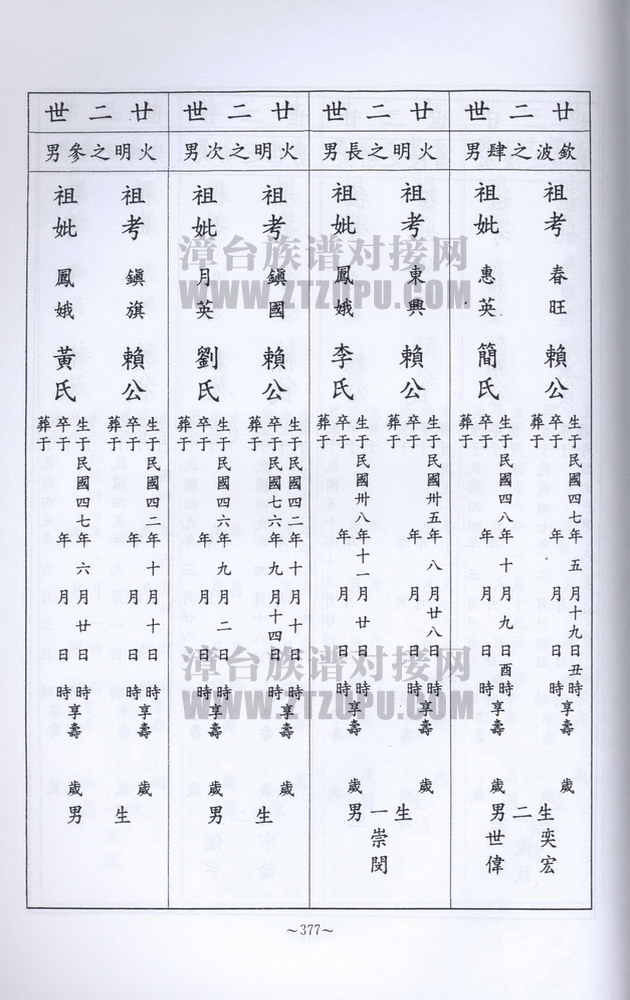 廿二世
欽波之肆男
祖考 春旺 賴公
生于民國四七年五月十九日丑時享壽 歲
卒于 年 月 日 時
葬于
祖妣 惠英 簡氏
生于民國四八年十月九日酉時享壽 歲
卒于 年 月 日 時
葬于
生二男
奕宏
世偉
廿二世
火明之長男
祖考 東興 賴公
生于民國卅五年八月廿八日 時享壽 歲
卒于 年 月 日 時
葬于
祖妣 鳳娥 李氏
生于民國卅八年十一月廿日 時享壽 歲
卒于 年 月 日 時
葬于
生一男
崇閔
廿二世
火明之次男
祖考 鎮國 賴公
生于民國四二年十月十日 時享壽 歲
卒于民國七六年九月十四日 時
葬于
祖妣 月英 劉氏
生于民國四六年九月二日 時享壽 歲
卒于 年 月 日 時
葬于
生 男
廿二世
火明之參男
祖考 鎮旗 賴公
生于民國四二年十月十日 時享壽 歲
卒于 年 月 日 時
葬于
祖妣 鳳娥 黃氏
生于民國四七年六月廿日 時享壽 歲
卒于 年 月 日 時
葬于
生 男
~377~
漳台族谱对接网
WWW.ZTZUPU.COM
漳台族谱对接网
WWW.ZTZUPU.COM